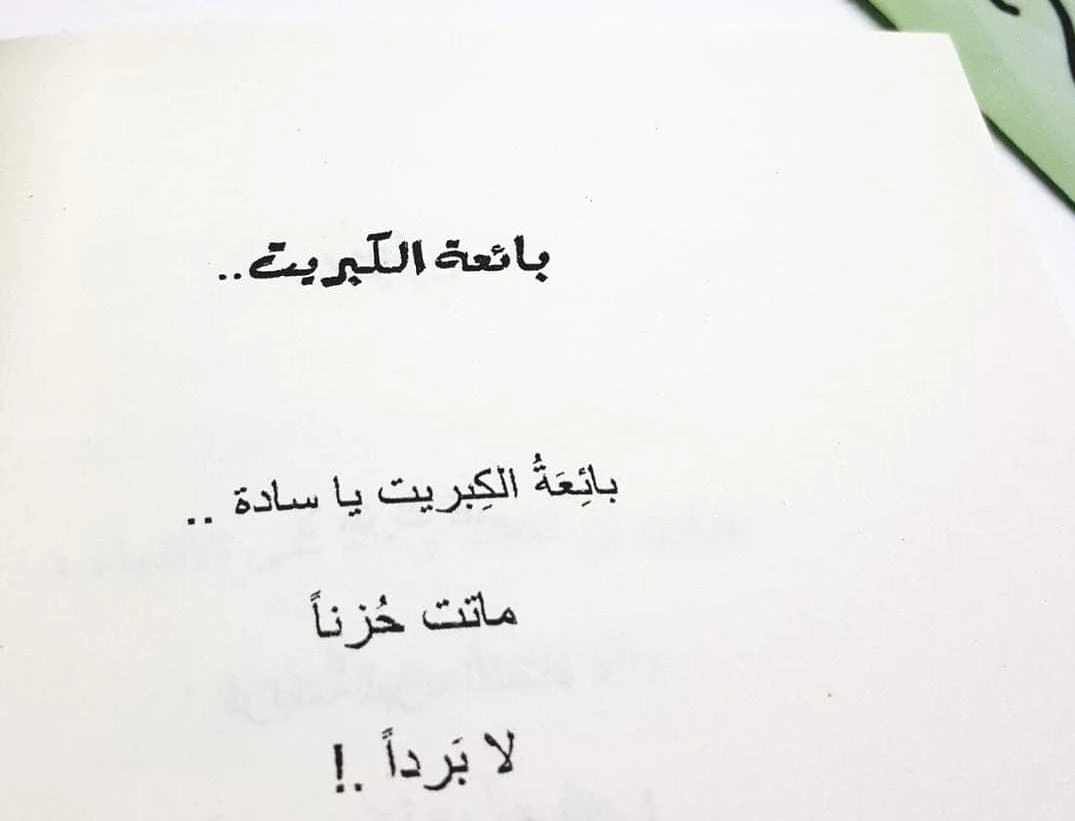 بائعة الكبريت..
بائِعَةُ الكِبريت يا سادة ..
ماتت حُزناً
لا بَرداً .!